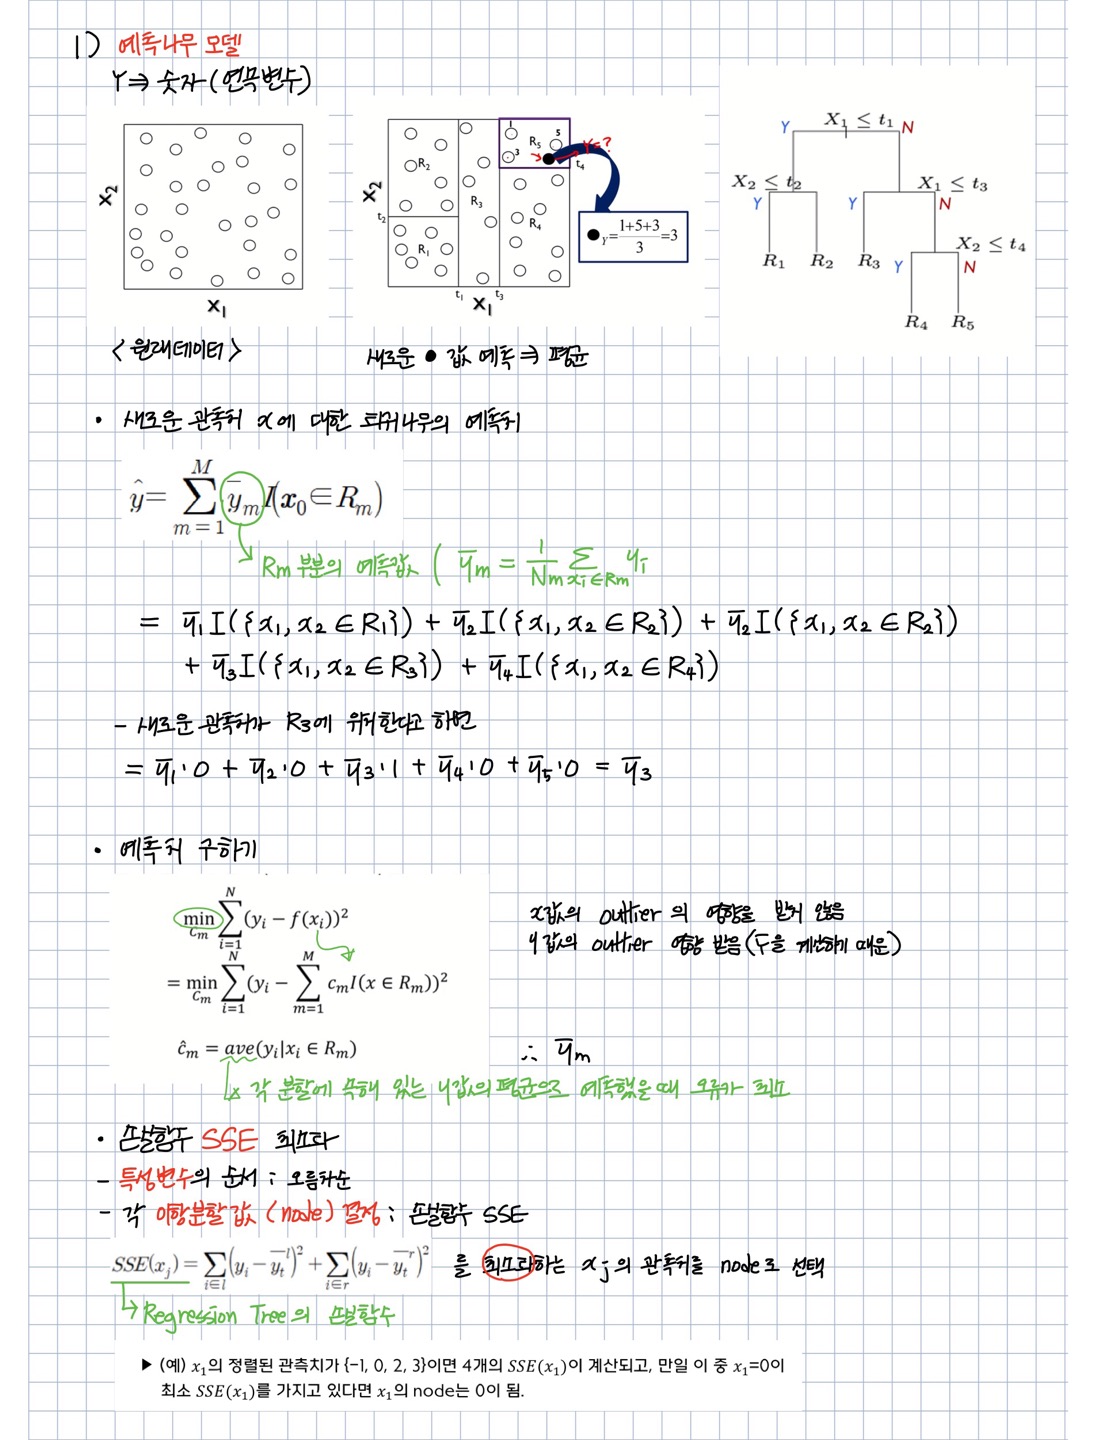 1) 예측나무 모델
Y⇒ 숫자 (연속변수)
X₂
X₁
<원래데이터>
X₂
t₂
R₂
R₁
R₃
R₄
R₅
1
5
3
Y=?
t₄
t₁
t₃
X₁
● Y=(1+5+3)/3=3
새로운 ● 값 예측 ⇒ 평균
X₁ ≤ t₁
Y N
X₂ ≤ t₂
X₁ ≤ t₃
Y Y N
X₂ ≤ t₄
R₁ R₂ R₃
Y N
R₄ R₅
• 새로운 관측치 x에 대한 회귀나무의 예측치
ŷ = ∑_{m=1}^{M} ȳ_m I(x₀∈R_m)
Rm 부분의 예측값 ( ȳm = 1/Nm ∑_{xi∈Rm} yi
= ȳ₁I({x₁, x₂ ∈ R₁}) + ȳ₂I({x₁, x₂ ∈ R₂}) + ȳ₂I({x₁, x₂ ∈ R₂})
+ ȳ₃I({x₁, x₂ ∈ R₃}) + ȳ₄I({x₁, x₂ ∈ R₄})
- 새로운 관측치가 R₃에 위치한다고 하면
= ȳ₁·0 + ȳ₂·0 + ȳ₃·1 + ȳ₄·0 + ȳ₅·0 = ȳ₃
• 예측치 구하기
min_{C_m} ∑_{i=1}^{N} (y_i − f(x_i))²
= min_{C_m} ∑_{i=1}^{N} (y_i − ∑_{m=1}^{M} c_m I(x ∈ R_m))²
ĉ_m = ave(y_i|x_i ∈ R_m)
x값의 outlier 의 영향을 받지 않음
y값의 outlier 영향 받음 (ȳ을 계산하기 때문)
∴ ȳm
각 분할에 속해 있는 y값의 평균으로 예측했을 때 오류가 최소
• 손실함수 SSE 최소화
- 특성변수의 순서 : 오름차순
- 각 이항분할값 (node) 결정 : 손실함수 SSE
SSE(x_j) = ∑_{i∈l} (y_i − ȳ_t^l)² + ∑_{i∈r} (y_i − ȳ_t^r)² 를 최소화하는 xj의 관측치를 node로 선택
Regression Tree의 손실함수
▶ (예) x₁의 정렬된 관측치가 {-1, 0, 2, 3}이면 4개의 SSE(x₁)이 계산되고, 만일 이 중 x₁=0이
최소 SSE(x₁)를 가지고 있다면 x₁의 node는 0이 됨.